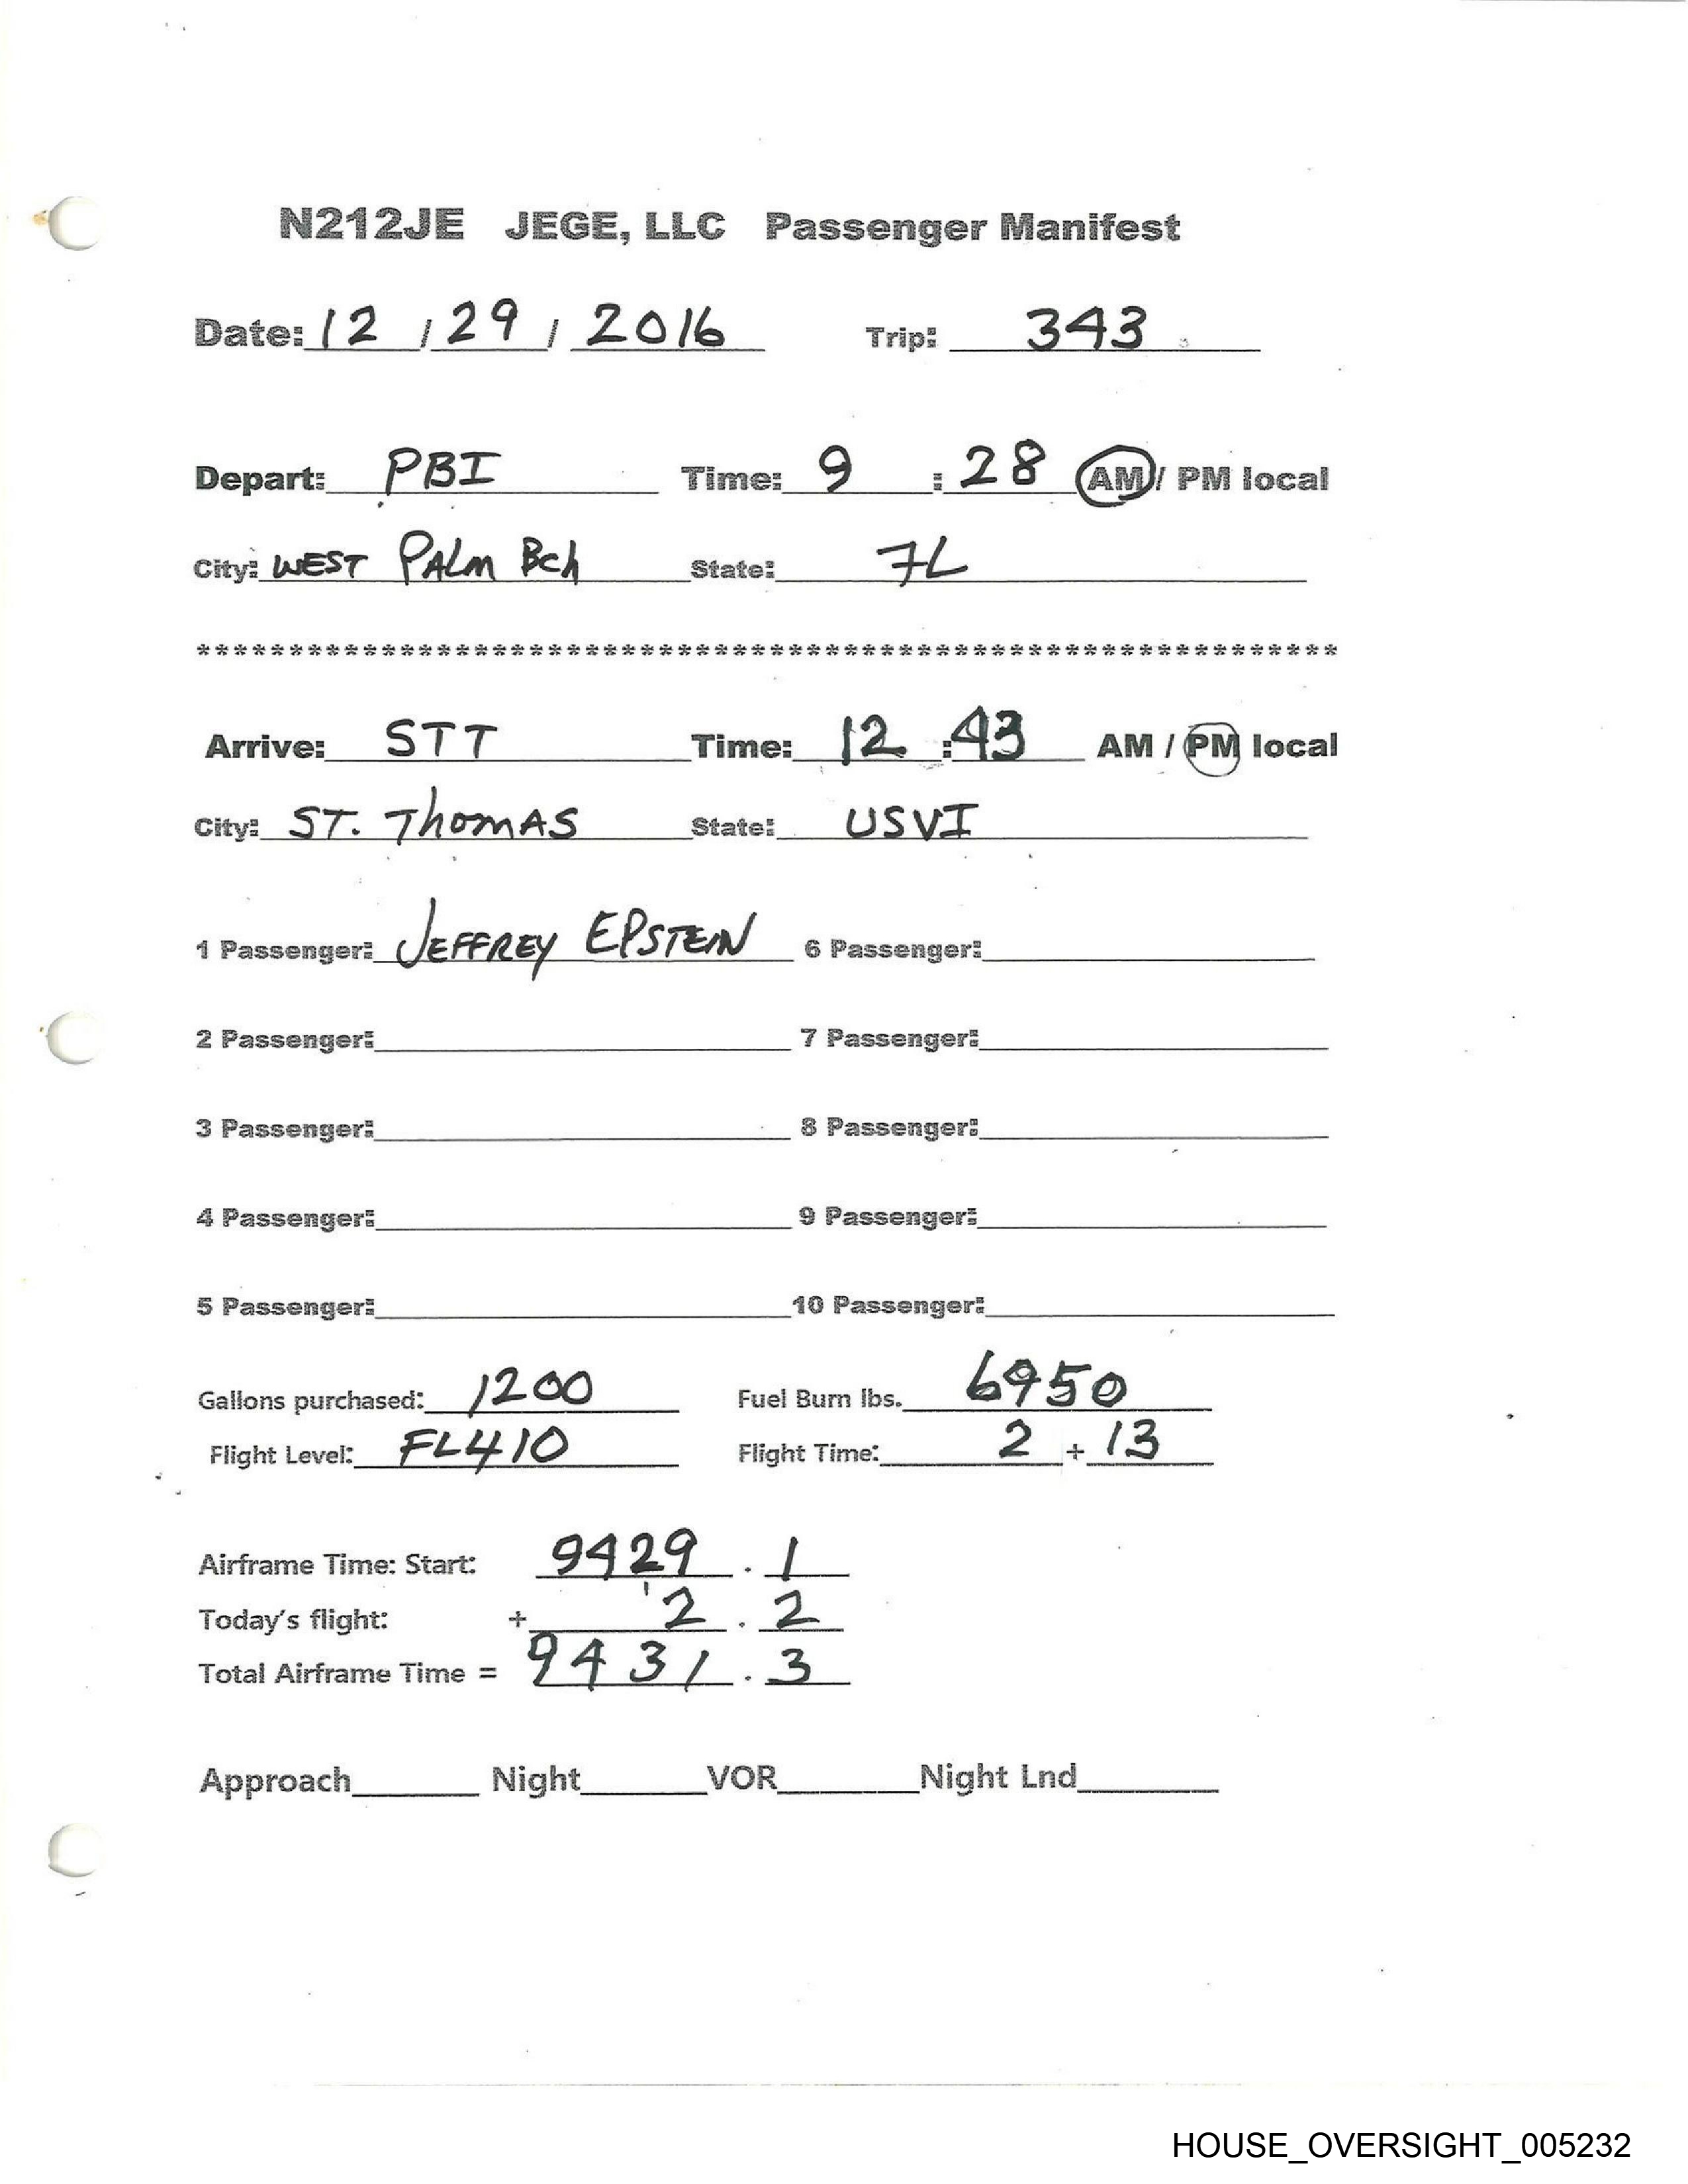 N212JE JEGE, LLC Passenger Manifest
Date: 12 / 29 / 2016 Trip: 343
Depart: PBI Time: 9 : 28 AM / PM local
City: WEST PALM Bch State: FL
**************************************************************
Arrive: STT Time: 12 : 43 AM / PM local
City: ST. ThomAS State: USVI
1 Passenger: JEFFREY EPSTEIN 6 Passenger:
2 Passenger: 7 Passenger:
3 Passenger: 8 Passenger:
4 Passenger: 9 Passenger:
5 Passenger: 10 Passenger:
Gallons purchased: 1200 Fuel Burn lbs. 6950
Flight Level: FL410 Flight Time: 2 + 13
Airframe Time: Start: 9429 . 1
Today's flight: + 2 . 2
Total Airframe Time = 9431 . 3
Approach Night VOR Night Lnd
HOUSE_OVERSIGHT_005232